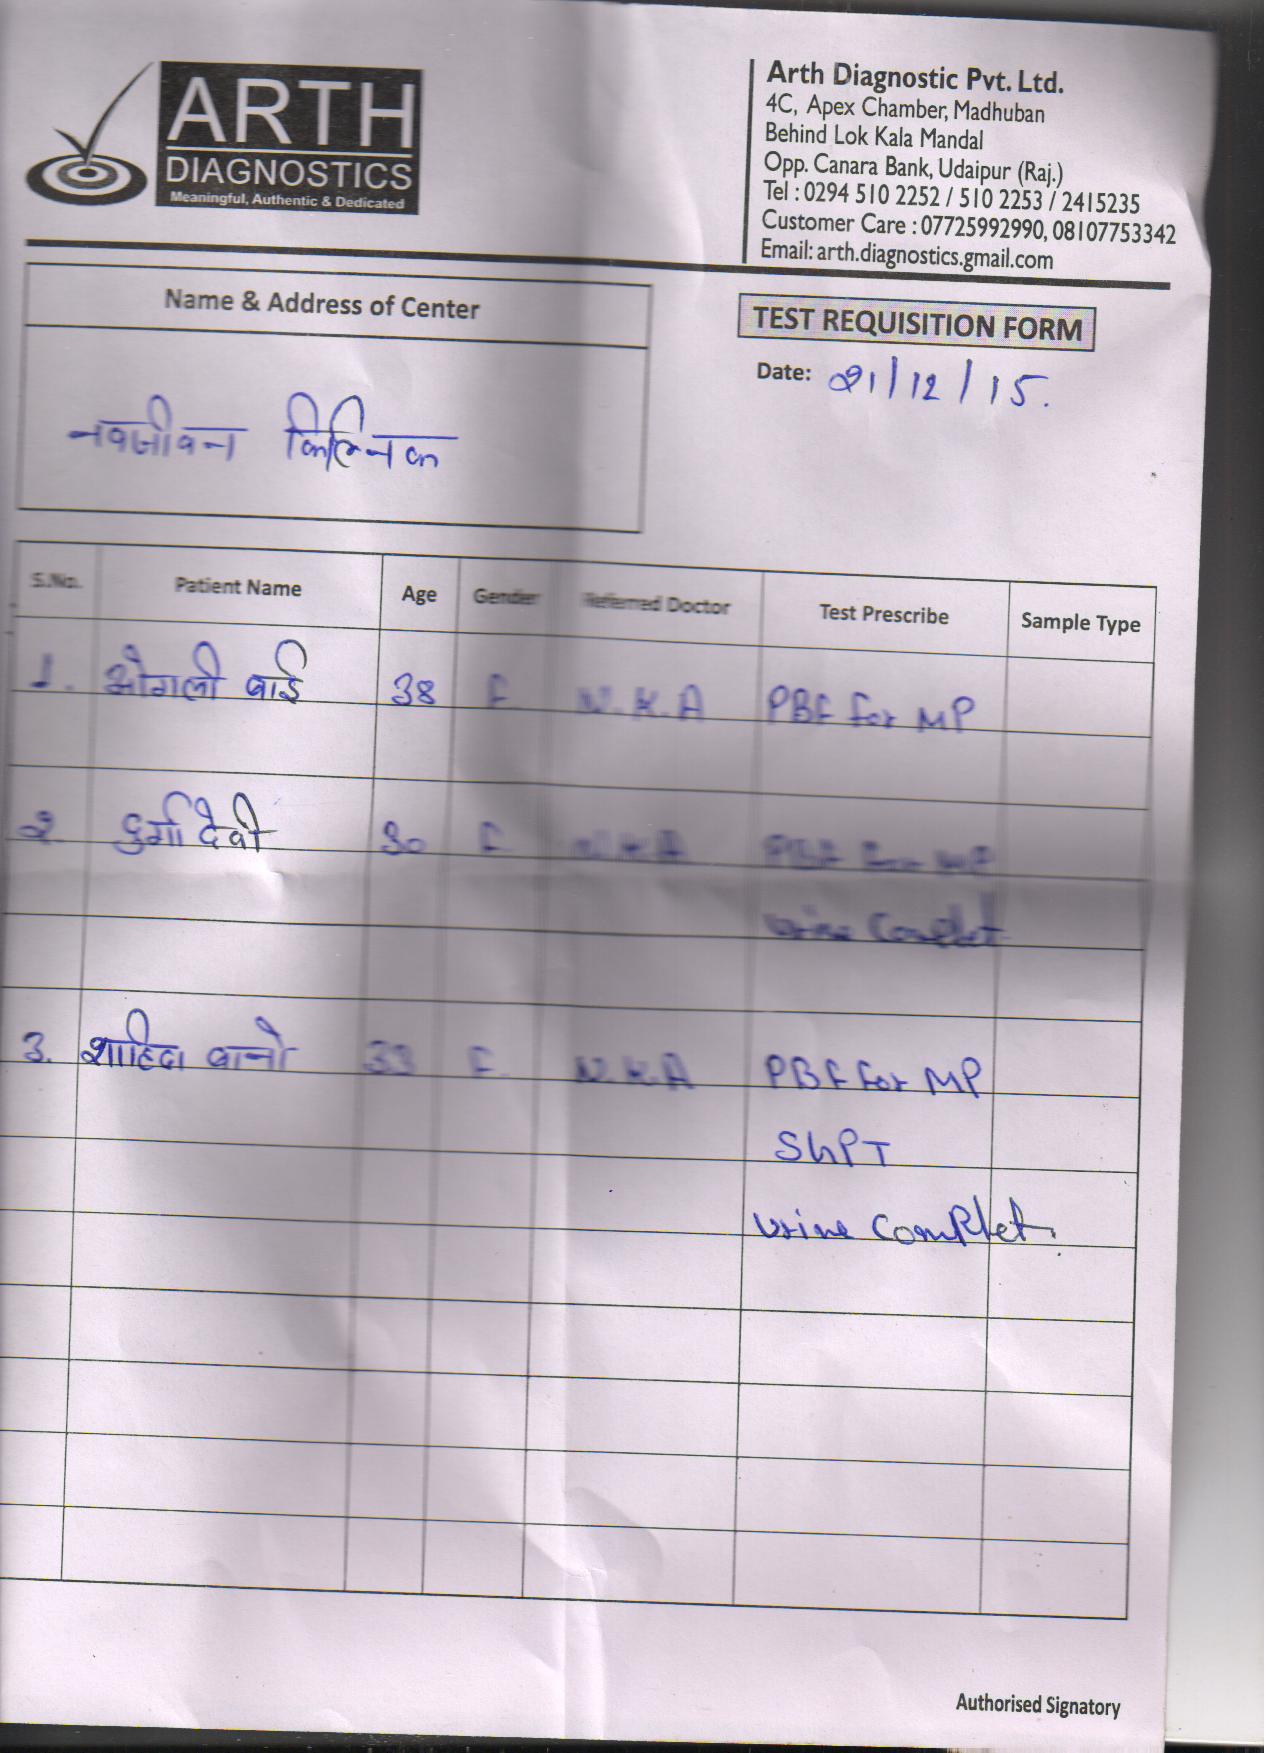 ARTH
DIAGNOSTICS
Meaningful, Authentic & Dedicated
Arth Diagnostic Pvt. Ltd.
4C, Apex Chamber, Madhuban
Behind Lok Kala Mandal
Opp. Canara Bank, Udaipur (Raj.)
Tel : 0294 510 2252 / 510 2253 / 2415235
Customer Care : 07725992990, 08107753342
Email: arth.diagnostics.gmail.com
Name & Address of Center
नवजीवन किलिनक
TEST REQUISITION FORM
Date: 21/12/15.
S.No. Patient Name Age Gender Referred Doctor Test Prescribe Sample Type
1. ओगली बाई 38 F. N.K.A PBF for MP
2. दुर्गा देवी 30 F N.K.A PBF for MP
urine Complet
3. शाहिदा बानो 33 F. N.K.A PBF for MP
SGPT
urine Complet.
Authorised Signatory